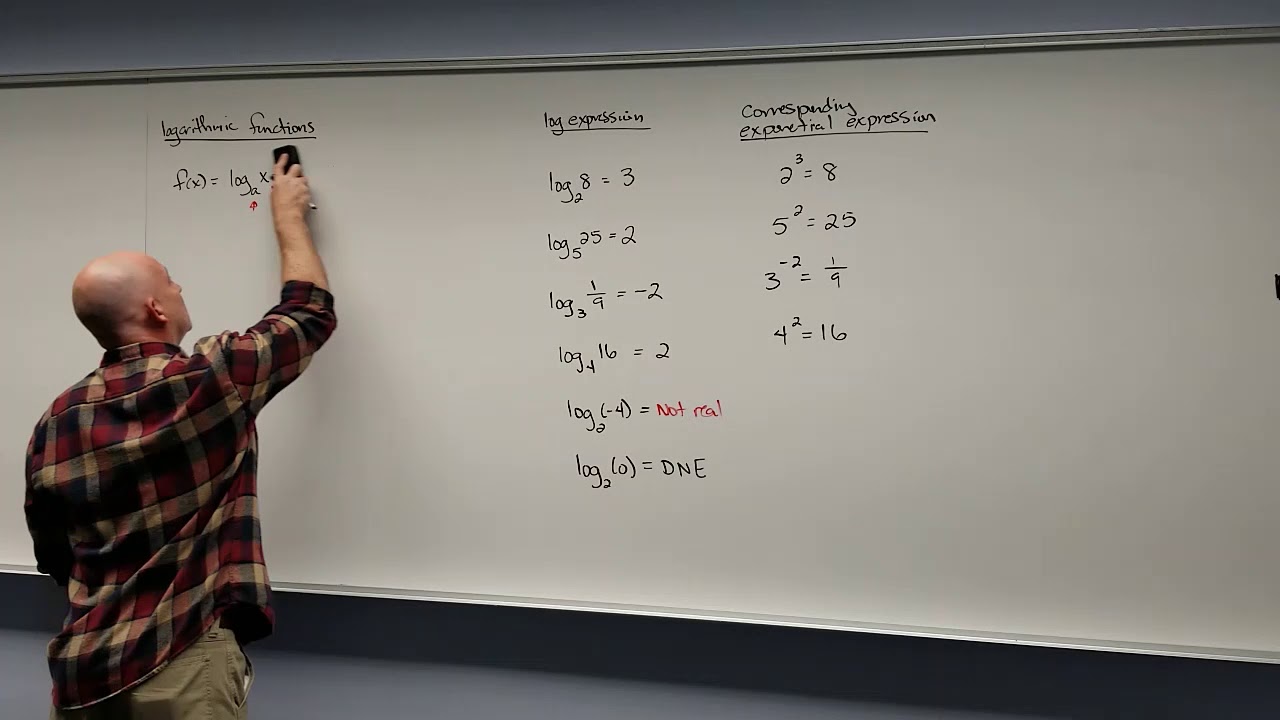 logarithmic functions
f(x) = logₐ x
log expression
log₂ 8 = 3
log₅ 25 = 2
log₃ 1/9 = -2
log₄ 16 = 2
log₂(-4) = Not real
log₂(0) = DNE
Corresponding
exponetial expression
2³ = 8
5² = 25
3⁻² = 1/9
4² = 16